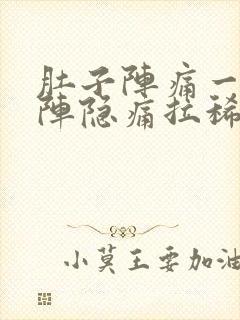 肚子陣痛一
陣隐痛拉稀
小莫王要加油